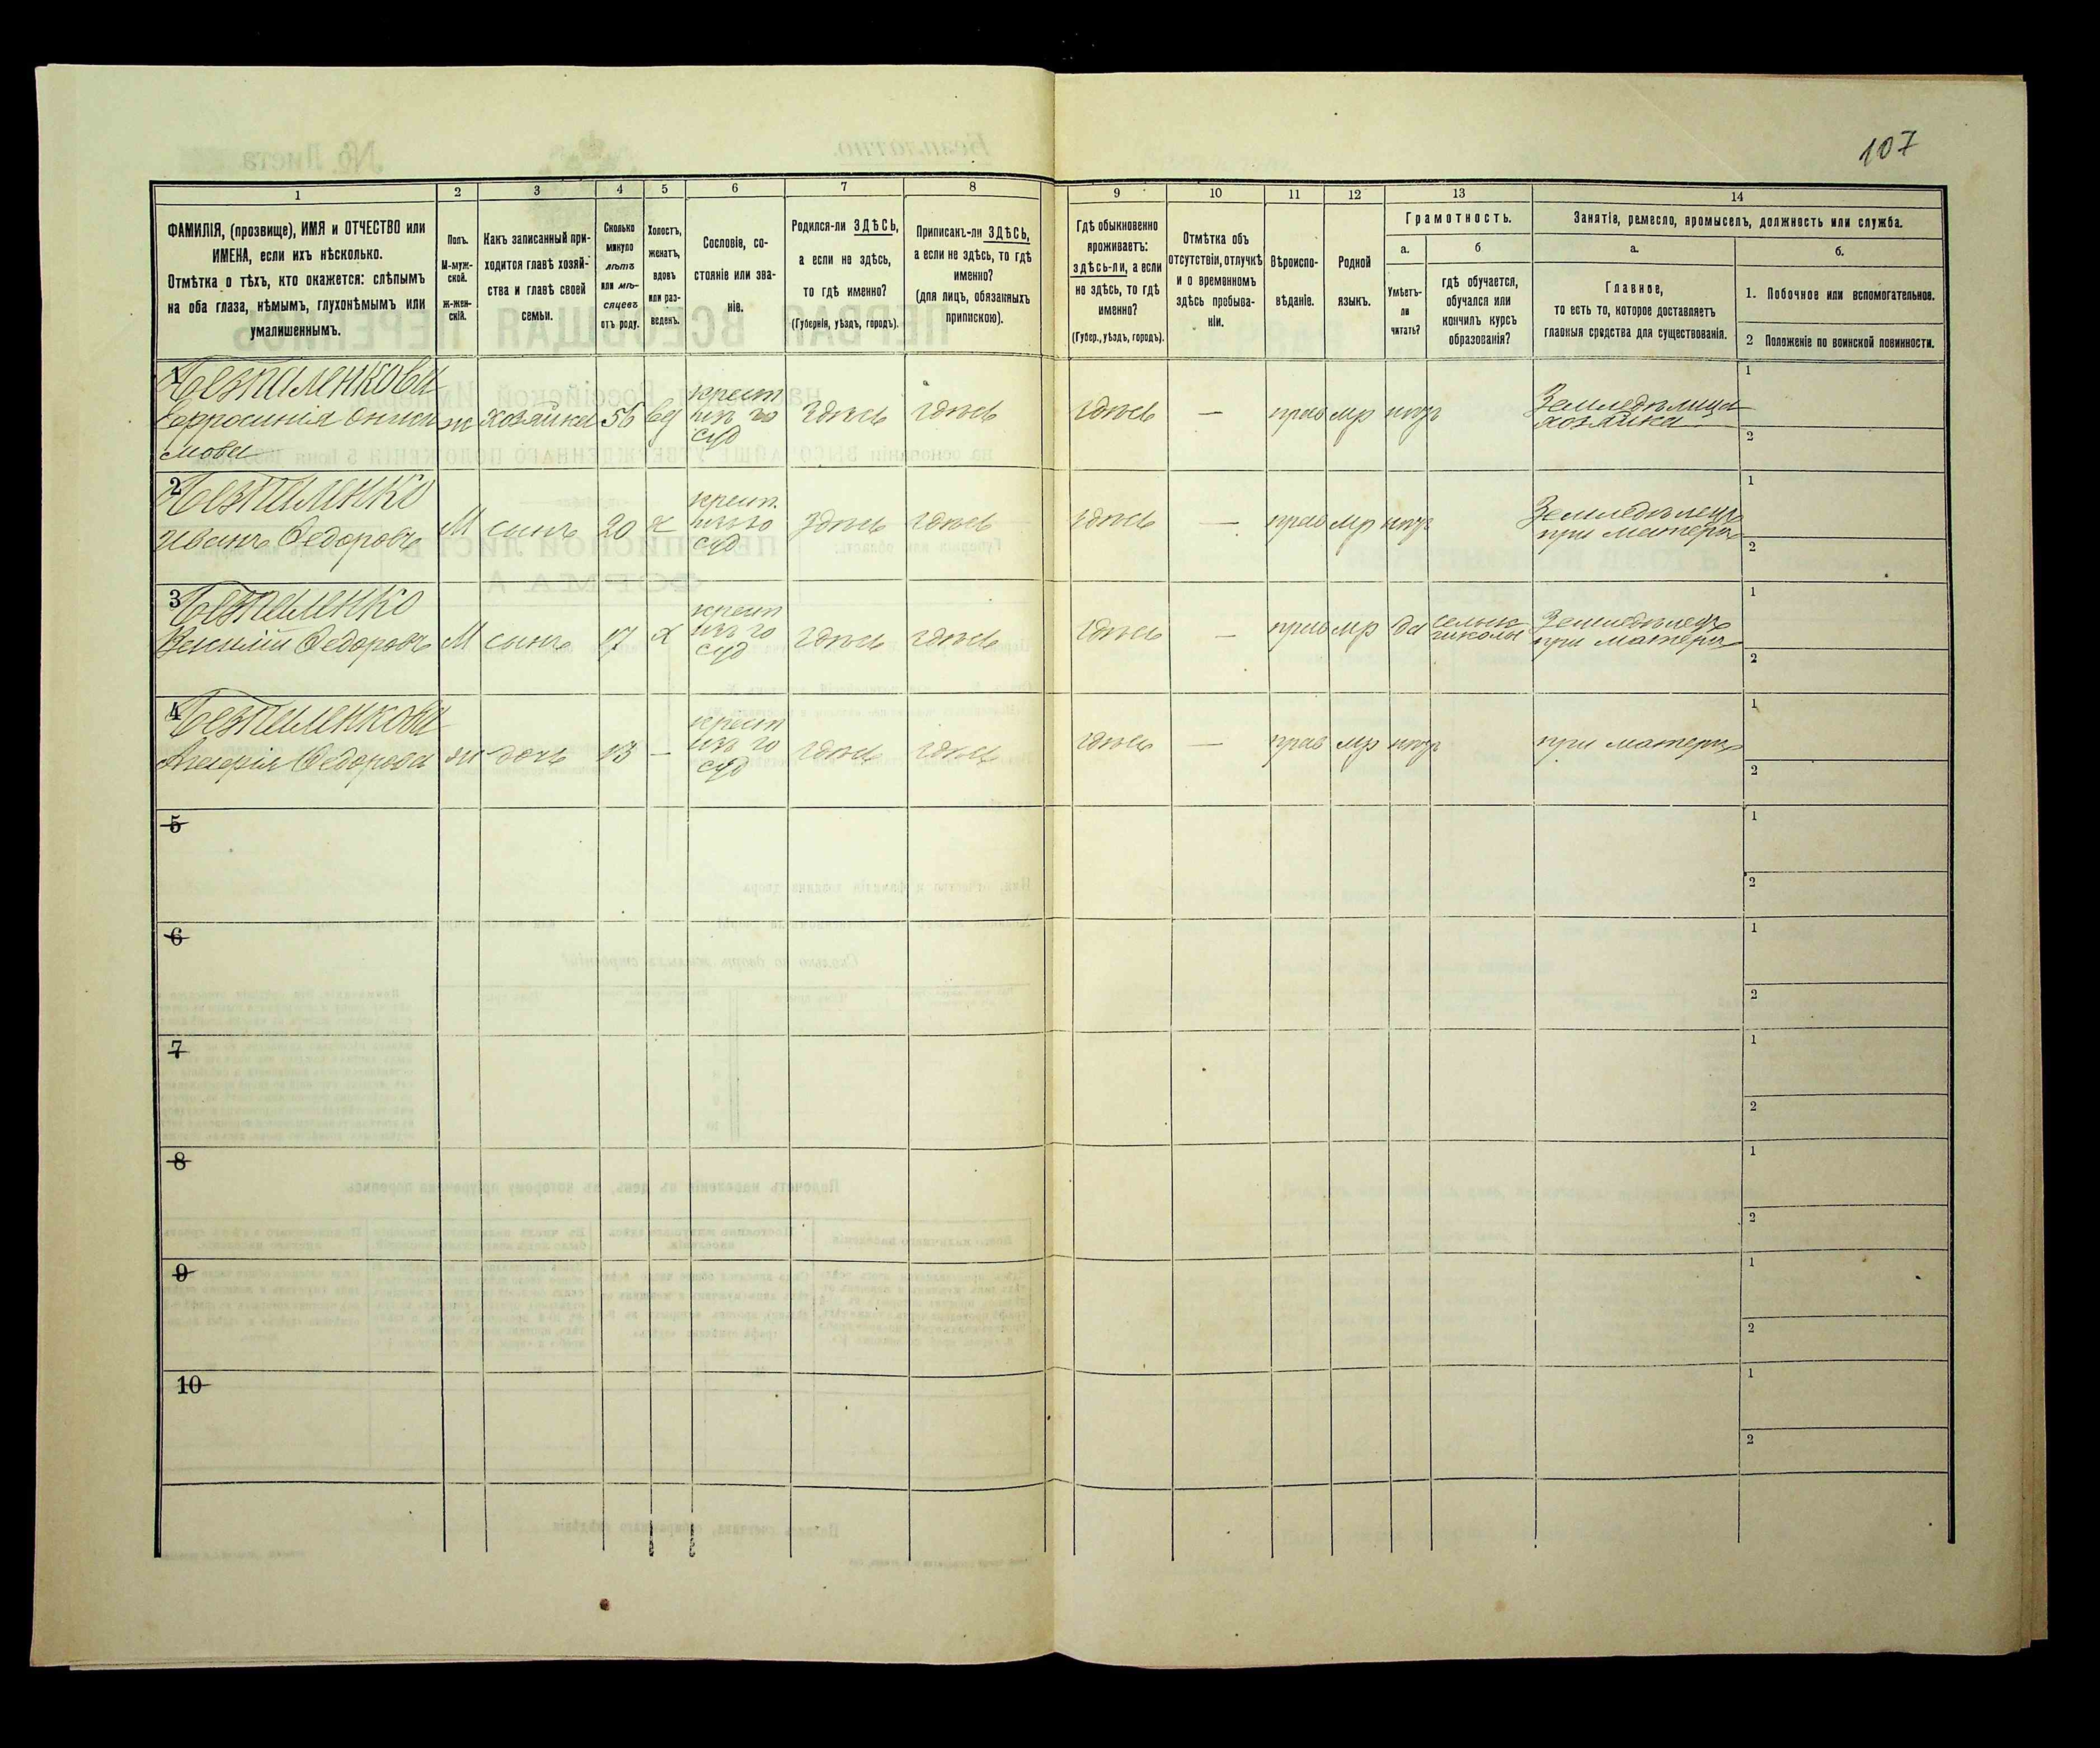 107
1
2
3
4
5
6
7
8
9
10
11
12
13
14
ФАМИЛІЯ, (прозвище), ИМЯ и ОТЧЕСТВО или
ИМЕНА, если ихъ нѣсколько.
Отмѣтка о тѣхъ, кто окажется: слѣпымъ
на оба глаза, нѣмымъ, глухонѣмымъ или
умалишеннымъ.
Полъ.
М-муж-
ской.
ж-жен-
скій.
Какъ записанный при-
ходится главѣ хозяй-
ства и главѣ своей
семьи.
Сколько
минуло
лѣтъ
или мѣ-
сяцевъ
отъ роду.
Холостъ,
женатъ,
вдовъ
или раз-
веденъ.
Сословіе, со-
стояніе или зва-
ніе.
Родился-ли ЗДѢСЬ,
а если не здѣсь,
то гдѣ именно?
(Губернія, уѣздъ, городъ).
Приписанъ-ли ЗДѢСЬ,
а если не здѣсь, то гдѣ
именно?
(для лицъ, обязанныхъ
припискою).
Гдѣ обыкновенно
проживаетъ:
здѣсь-ли, а если
не здѣсь, то гдѣ
именно?
(Губер., уѣздъ, городъ).
Отмѣтка объ
отсутствіи, отлучкѣ
и о временномъ
здѣсь пребыва-
ніи.
Вѣроиспо-
вѣданіе.
Родной
языкъ.
Грамотность.
а.
б
Умѣетъ-
ли
читать?
гдѣ обучается,
обучался или
кончилъ курсъ
образованія?
Занятіе, ремесло, промыселъ, должность или служба.
а.
б.
Главное,
то есть то, которое доставляетъ
главныя средства для существованія.
1. Побочное или вспомогательное.
2 Положеніе по воинской повинности.
1
Безпаленкова
Ефросинія Ониси
мова
ж
хозяйка
56
вд
крест
изъ го
суд
Здѣсь
здѣсь
здѣсь
—
прав
мр
нтъ
Земледѣлица
хозяйка
1
2
2
Безпаленко
Иванъ Федоровъ
М
сынъ
20
х
крест.
изъ го
суд
Здѣсь
здѣсь
здѣсь
—
прав
мр
нтъ
Земледѣлецъ
при матери
1
2
3
Безпаленко
Василій Федоровъ
М
сынъ
17
х
крест
изъ го
суд
здѣсь
здѣсь
здѣсь
—
прав
мр
да
сельск
школы
Земледѣлецъ
при матери
1
2
4
Безпаленкова
Федорова
ж
дочь
13
—
крест
изъ го
суд
здѣсь
здѣсь
здѣсь
—
прав
мр
нтъ
при матери
1
2
5
1
2
6
1
2
7
1
2
8
1
2
9
1
2
10
1
2